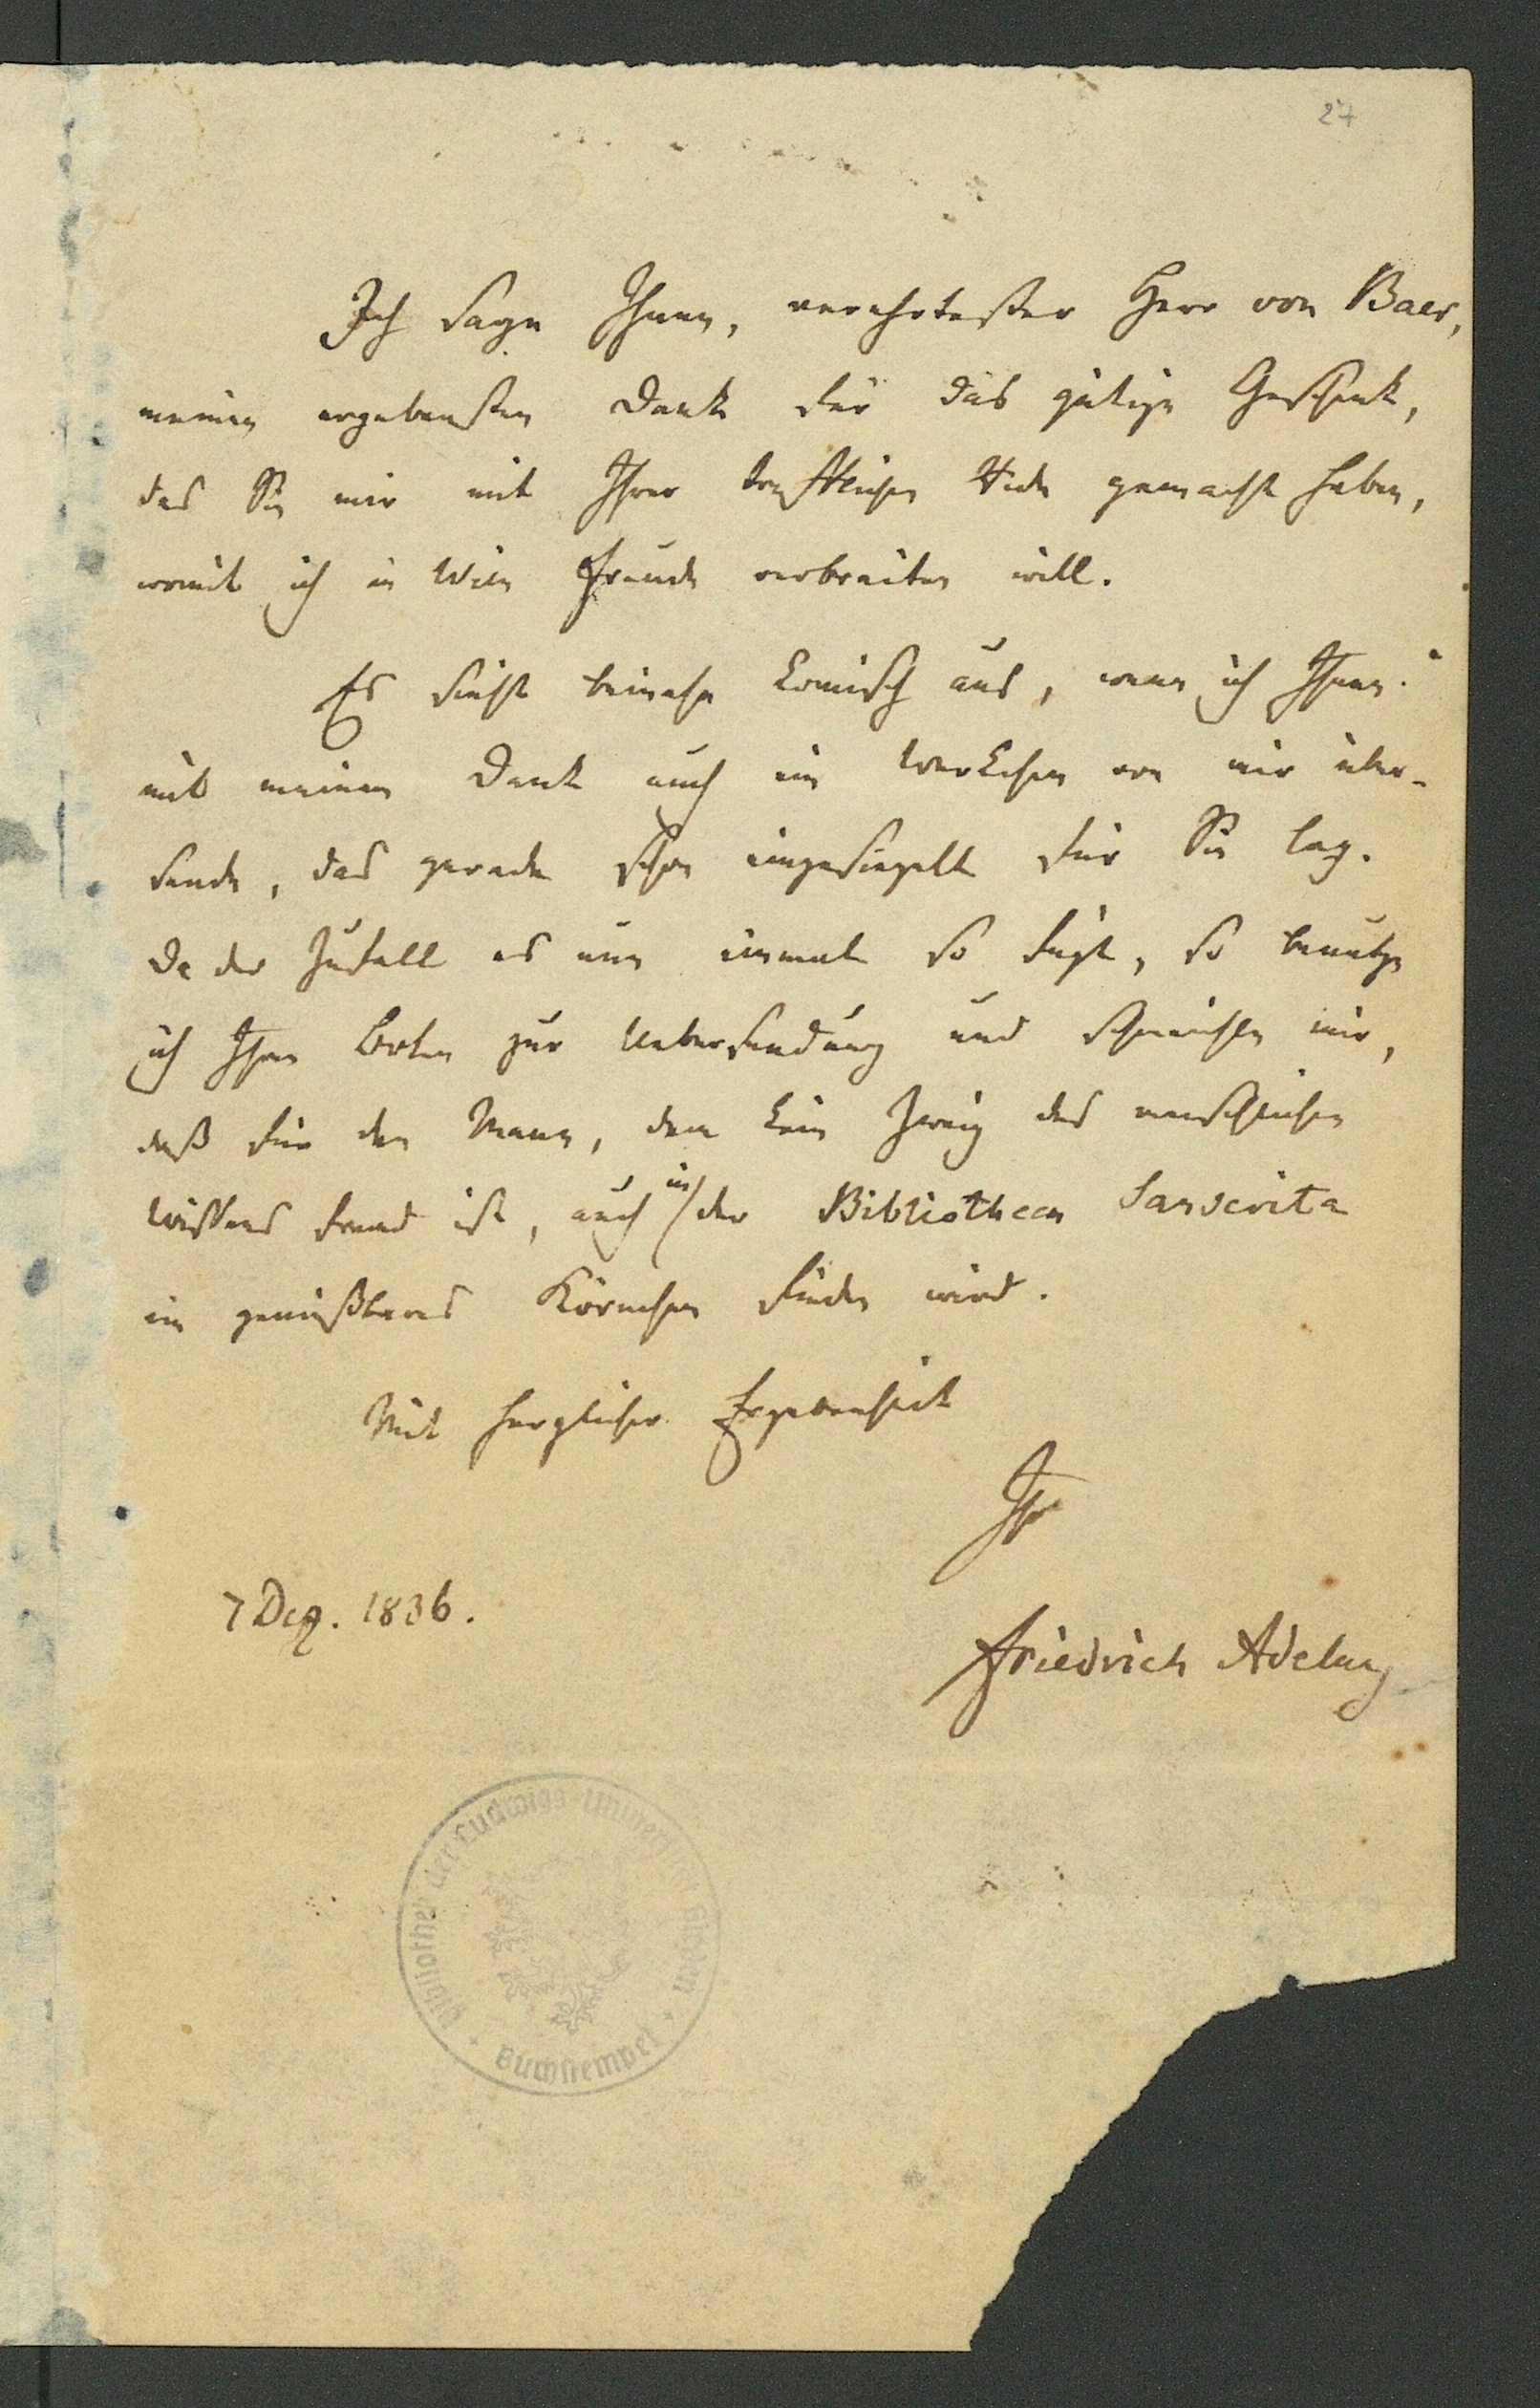 27
Ich sage Ihnen, verehrtester Herr von Baer,
meinen ergebensten Dank für das gütige Geschenk,
das Sie mir mit Ihrer trefflichen Rede gemacht haben,
womit ich in Wien Freude verbreiten will.
Es sieht beinahe komisch aus, wenn ich Ihnen
mit meinem Dank auch ein Werkchen von mir über-
sende, das gerade schon eingesiegelt für Sie lag.
Da der Zufall es nun einmal so fügt, so benutze
ich Ihren Boten zur Uebersendung und schmeichle mir,
daß für den Mann, dem kein Zweig des menschlichen
Wissens fremd ist, auch in der Bibliotheca Sanscrita
ein genießbares Körnchen finden wird.
Mit herzlicher Ergebenheit
Ihr
7 Dez. 1836.
Friedrich Adelung
Bibliothek der Ludwigs-Universität Gießen
Buchstempel